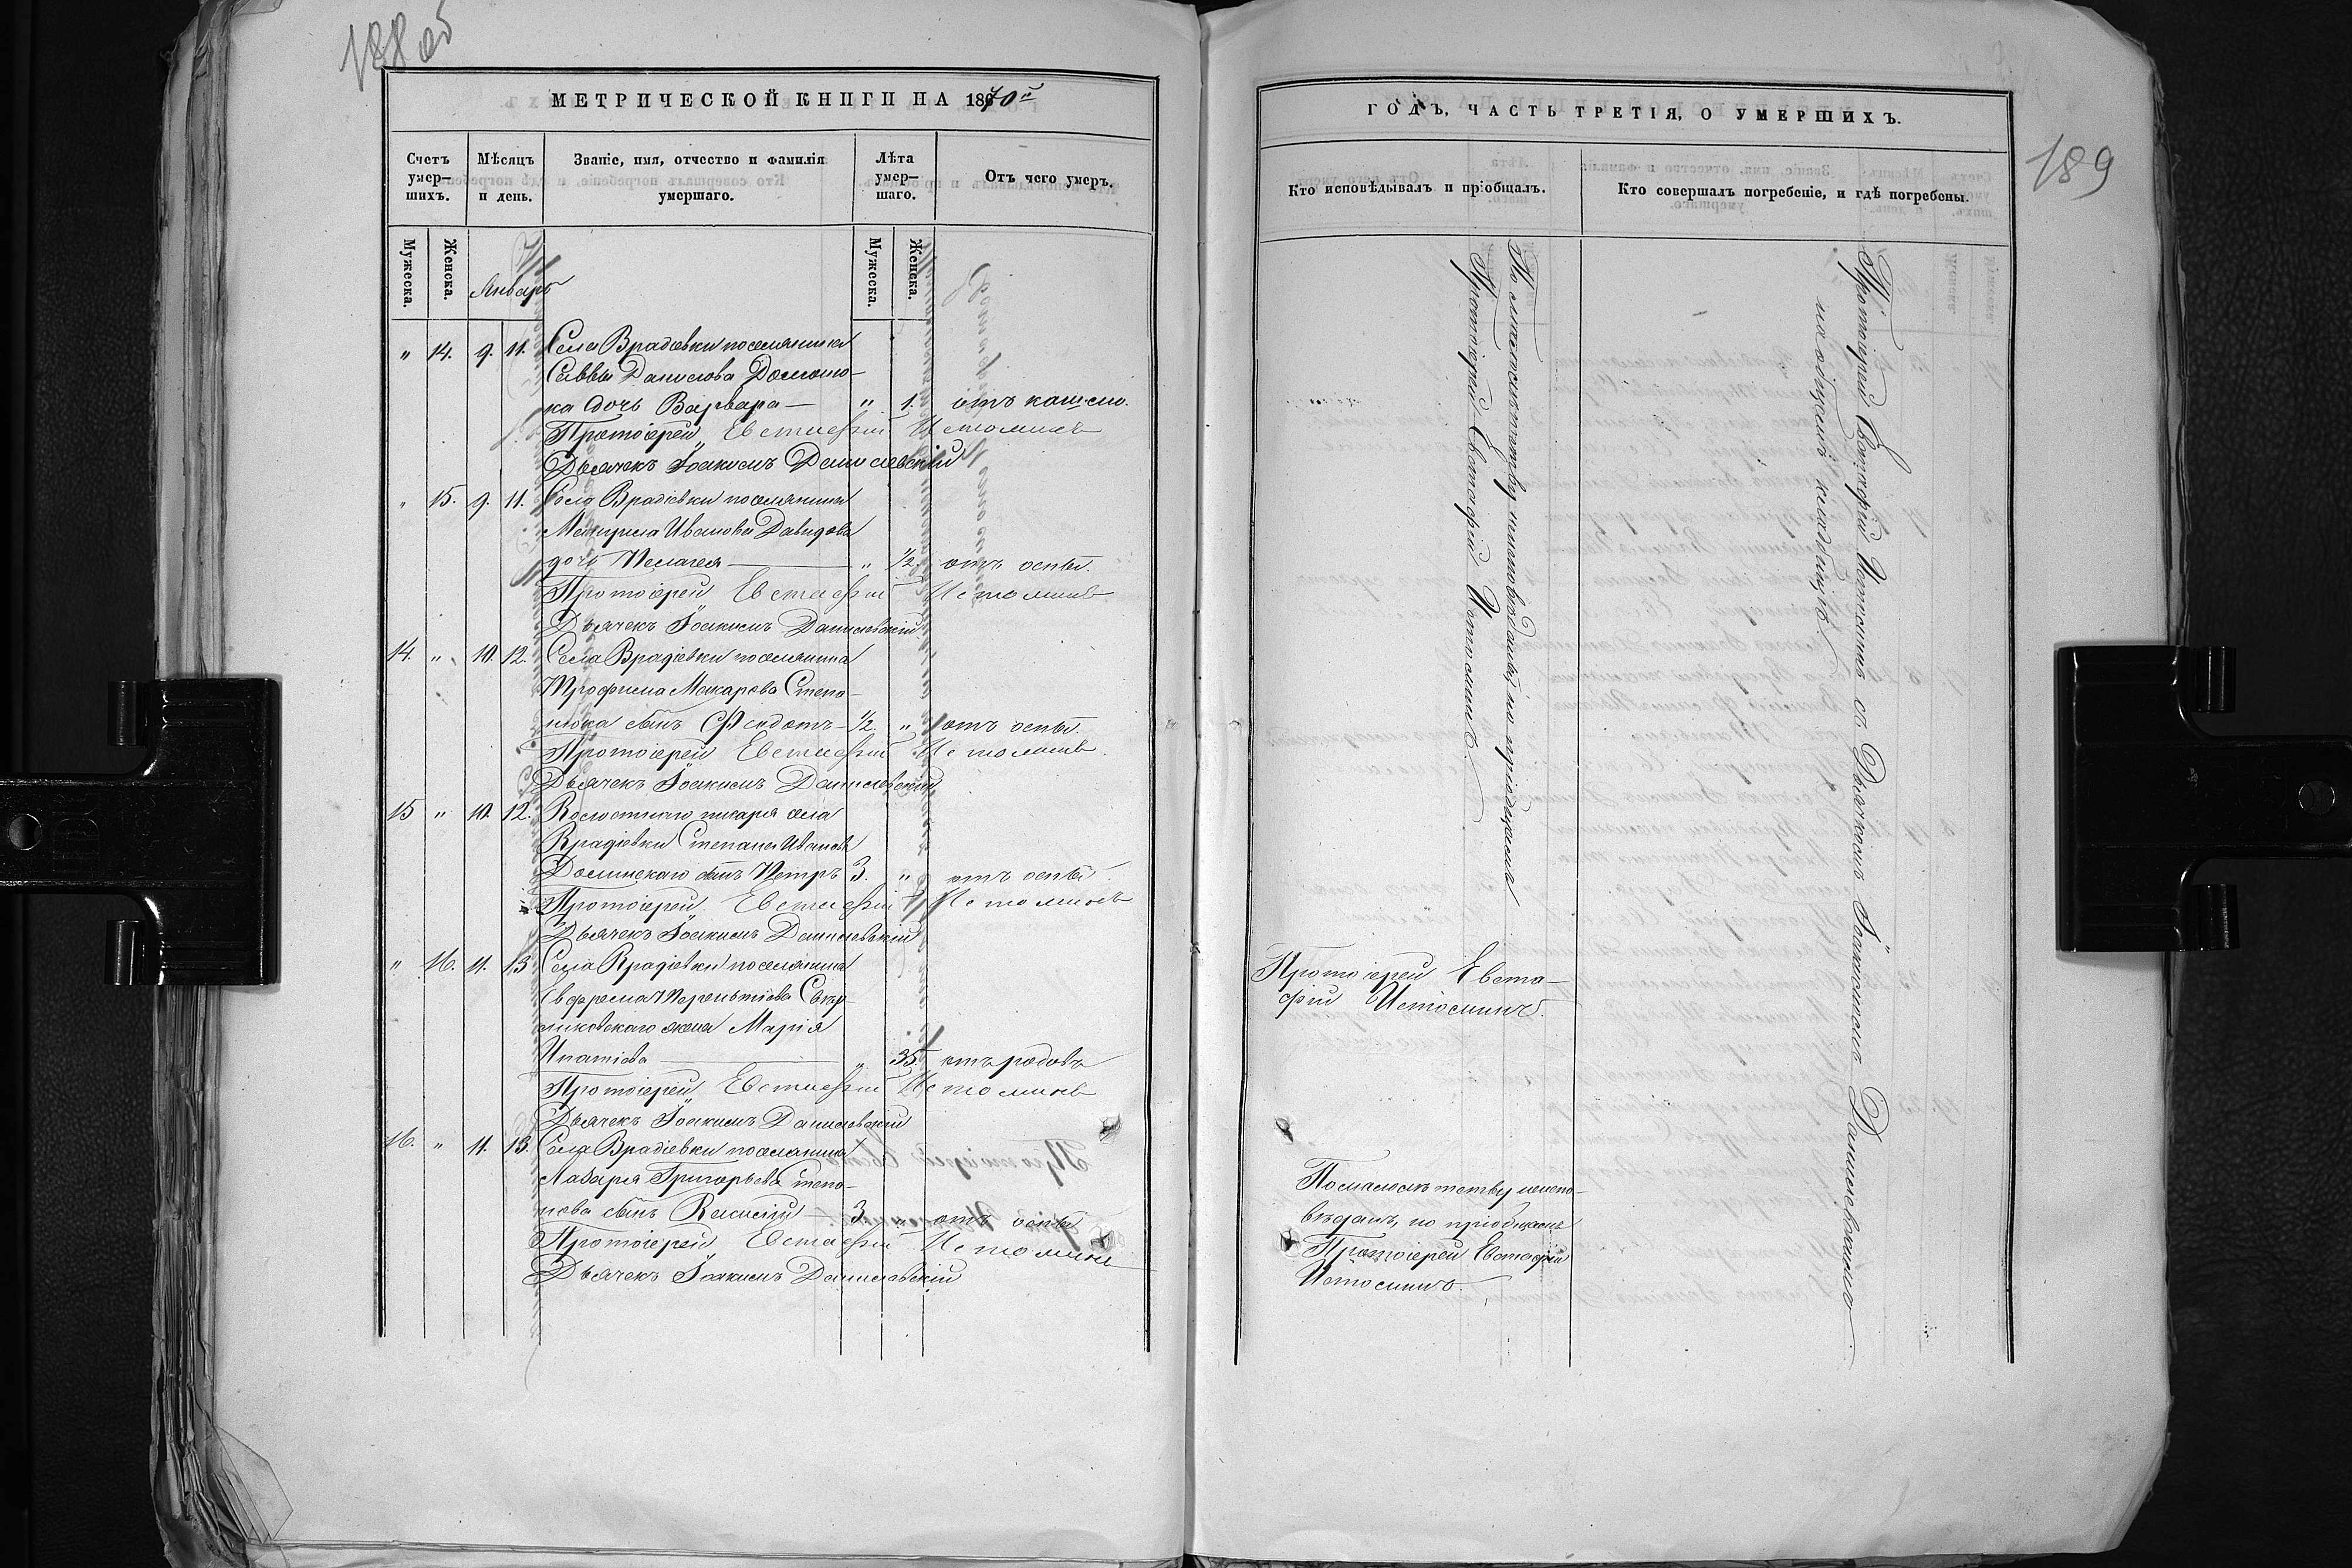 188 об
МЕТРИЧЕСКОЙ КНИГИ НА 1870й
Счетъ умер-шихъ.
Мѣсяцъ и день.
Званіе, имя, отчество и фамилія умершаго.
Лѣта умер-шаго.
Отъ чего умеръ.
Мужеска.
Женска.
Январь
Мужеска.
Женска.
" 14. 9. 11. Села Врадіевки поселянина
Саввы Данилова
ка дочь Варвара — " 1. отъ кашлю.
Протоіерей Евстафій Истоминъ
Дьячекъ Іоакимъ Данилевскій
" 15. 9. 11. Села Врадіевки поселянина
Ивановы Давидова
дочь Пелагея — " 1/2. отъ оспы.
Протоіерей Евстафій Истоминъ
Дьячекъ Іоакимъ Данилевскій
14. " 10. 12. Села Врадіевки поселянина
Трофима Макарова Степа-
нюка сынъ Федотъ — 1/2. " отъ оспы.
Протоіерей Евстафій Истоминъ
Дьячекъ Іоакимъ Данилевскій
15 " 10. 12. Волостнаго писаря села
Врадіевки Степана Иванова
Долинскаго сынъ Петръ 3. " отъ оспы.
Протоіерей Евстафій Истоминъ
Дьячекъ Іоакимъ Данилевскій
" 16. 11. 13 Села Врадіевки поселянина
Евфрема Терентіева
жена Марія
Ипатіева — " 35. отъ родовъ
Протоіерей Евстафій Истоминъ
Дьячекъ Іоакимъ Данилевскій
16. " 11. 13. Села Врадіевки поселянина
Лазаря Григорьева Степа-
нова сынъ Василій — 3. " отъ оспы
Протоіерей Евстафій Истоминъ
Дьячекъ Іоакимъ Данилевскій
189
ГОДЪ, ЧАСТЬ ТРЕТІЯ, О УМЕРШИХЪ.
Кто исповѣдывалъ и пріобщалъ.
Кто совершалъ погребеніе, и гдѣ погребены.
По малолѣтству неисповѣданы, но пріобщены
Протоіерей Евстафій Истоминъ.
Протоіерей Евста-
фій Истоминъ.
По малолѣтству неиспо-
вѣданъ, но пріобщенъ
Протоіерей Евстафій
Истоминъ.
Протоіерей Евстафій Истоминъ съ Дьячкомъ Іоакимомъ Данилевскимъ
на общемъ кладбищѣ.